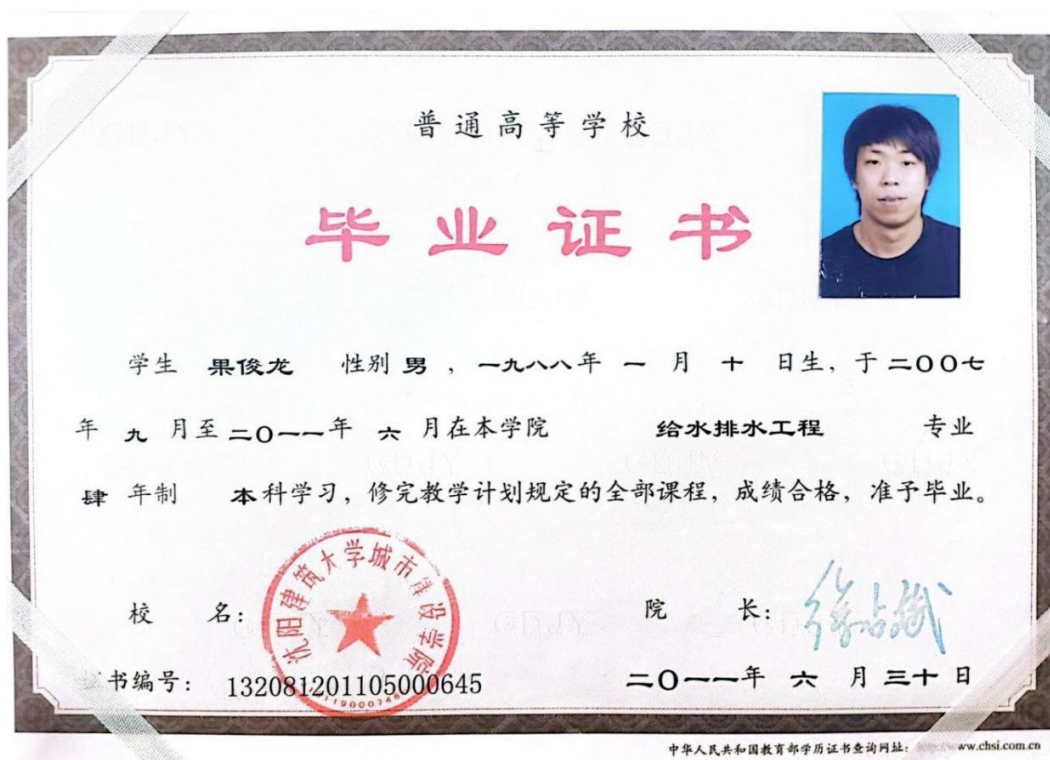 普通高等学校
毕业证书
学生 果俊龙 性别 男 ，一九八八年 一 月 十 日生，于 二〇〇七
年 九 月至 二〇一一年 六 月在本学院 给水排水工程 专业
肆 年制 本科学习，修完教学计划规定的全部课程，成绩合格，准予毕业。
沈阳建筑大学城市建设学院
校 名： 院 长：
书编号： 132081201105000645 二〇一一年 六 月 三十 日
中华人民共和国教育部学历证书查询网址： www.chsi.com.cn